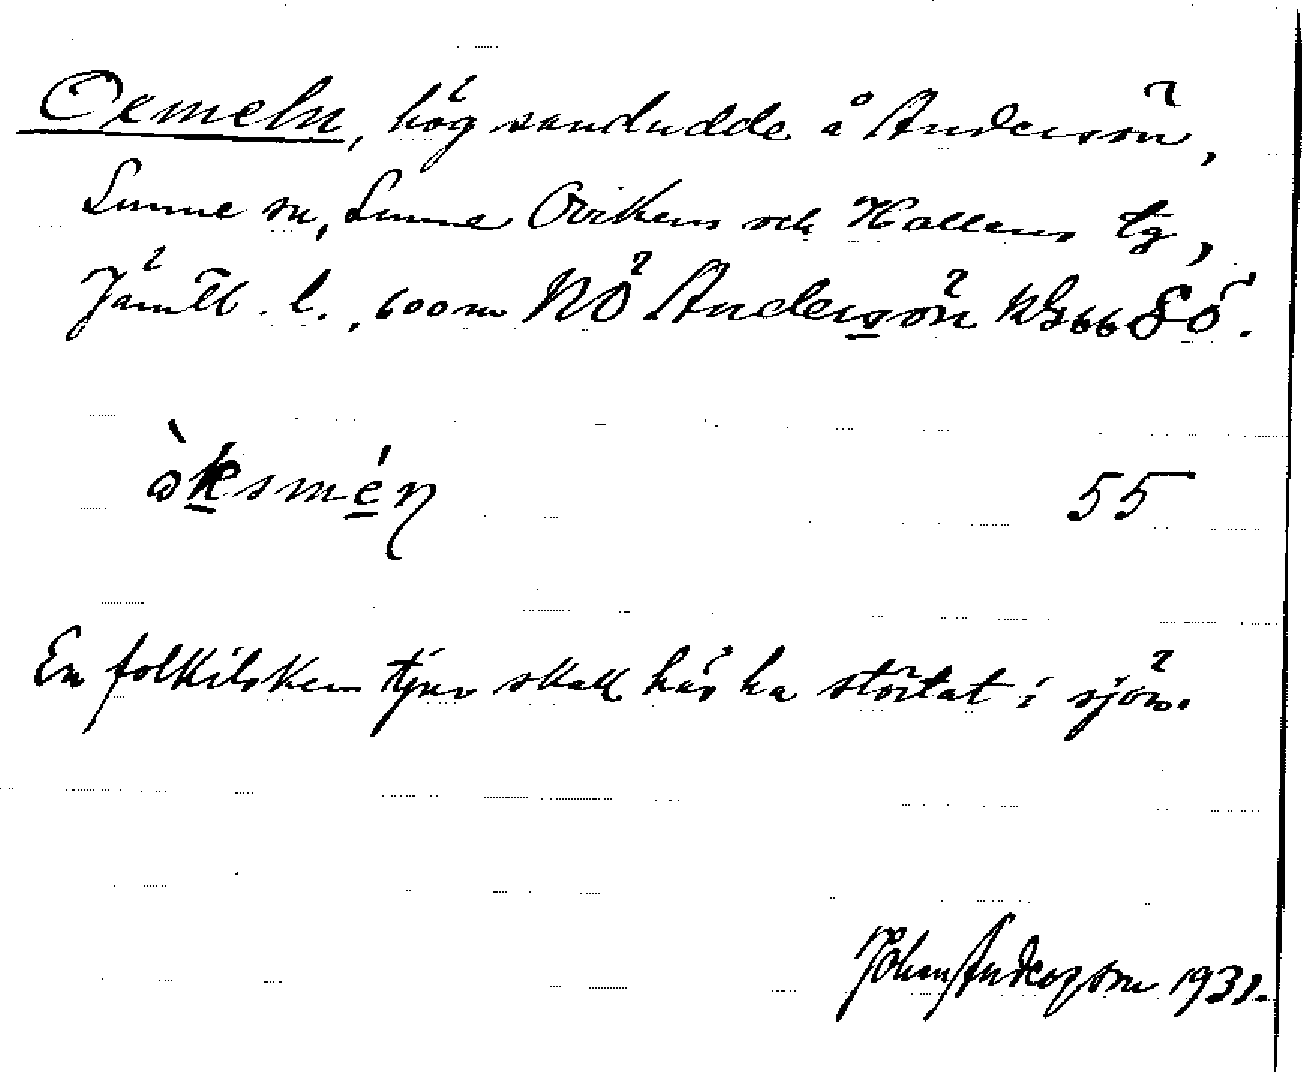 Oxmeln, hög sandudde å Andersön,
Sunne sn, Sunne Ovikens och Hallens tg,
Jämtl. l., 600 m NÖ Andersön kG 66 SÖ.
òksmén 55
En folkilsken tjur skall här ha störtat i sjön.
Johan Anderzson 1931.